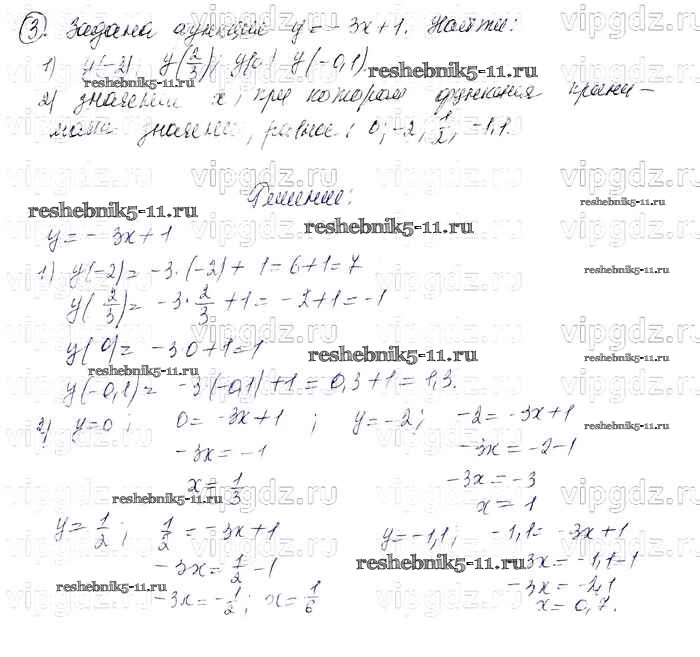 3. Задана функция y = -3x+1. Найти:
1) y(-2), y(2/3), y(0), y(-0,1)
2) значения x, при котором функция прини-
мала значения, равное: 0; -2; 1/2; -1,1.
Решение:
y = -3x+1
1) y(-2) = -3·(-2)+1 = 6+1 = 7
y(2/3) = -3·2/3+1 = -2+1 = -1
y(0) = -3·0+1 = 1
y(-0,1) = -3(-0,1)+1 = 0,3+1 = 1,3.
2) y=0; 0 = -3x+1 ; y = -2; -2 = -3x+1
-3x = -1 -3x = -2-1
x = 1/3 -3x = -3
x = 1
y = 1/2; 1/2 = -3x+1 y = -1,1; -1,1 = -3x+1
-3x = 1/2 -1 -3x = -1,1-1
-3x = -1/2; x = 1/6 -3x = -2,1
x = 0,7.
reshebnik5-11.ru
vipgdz.ru